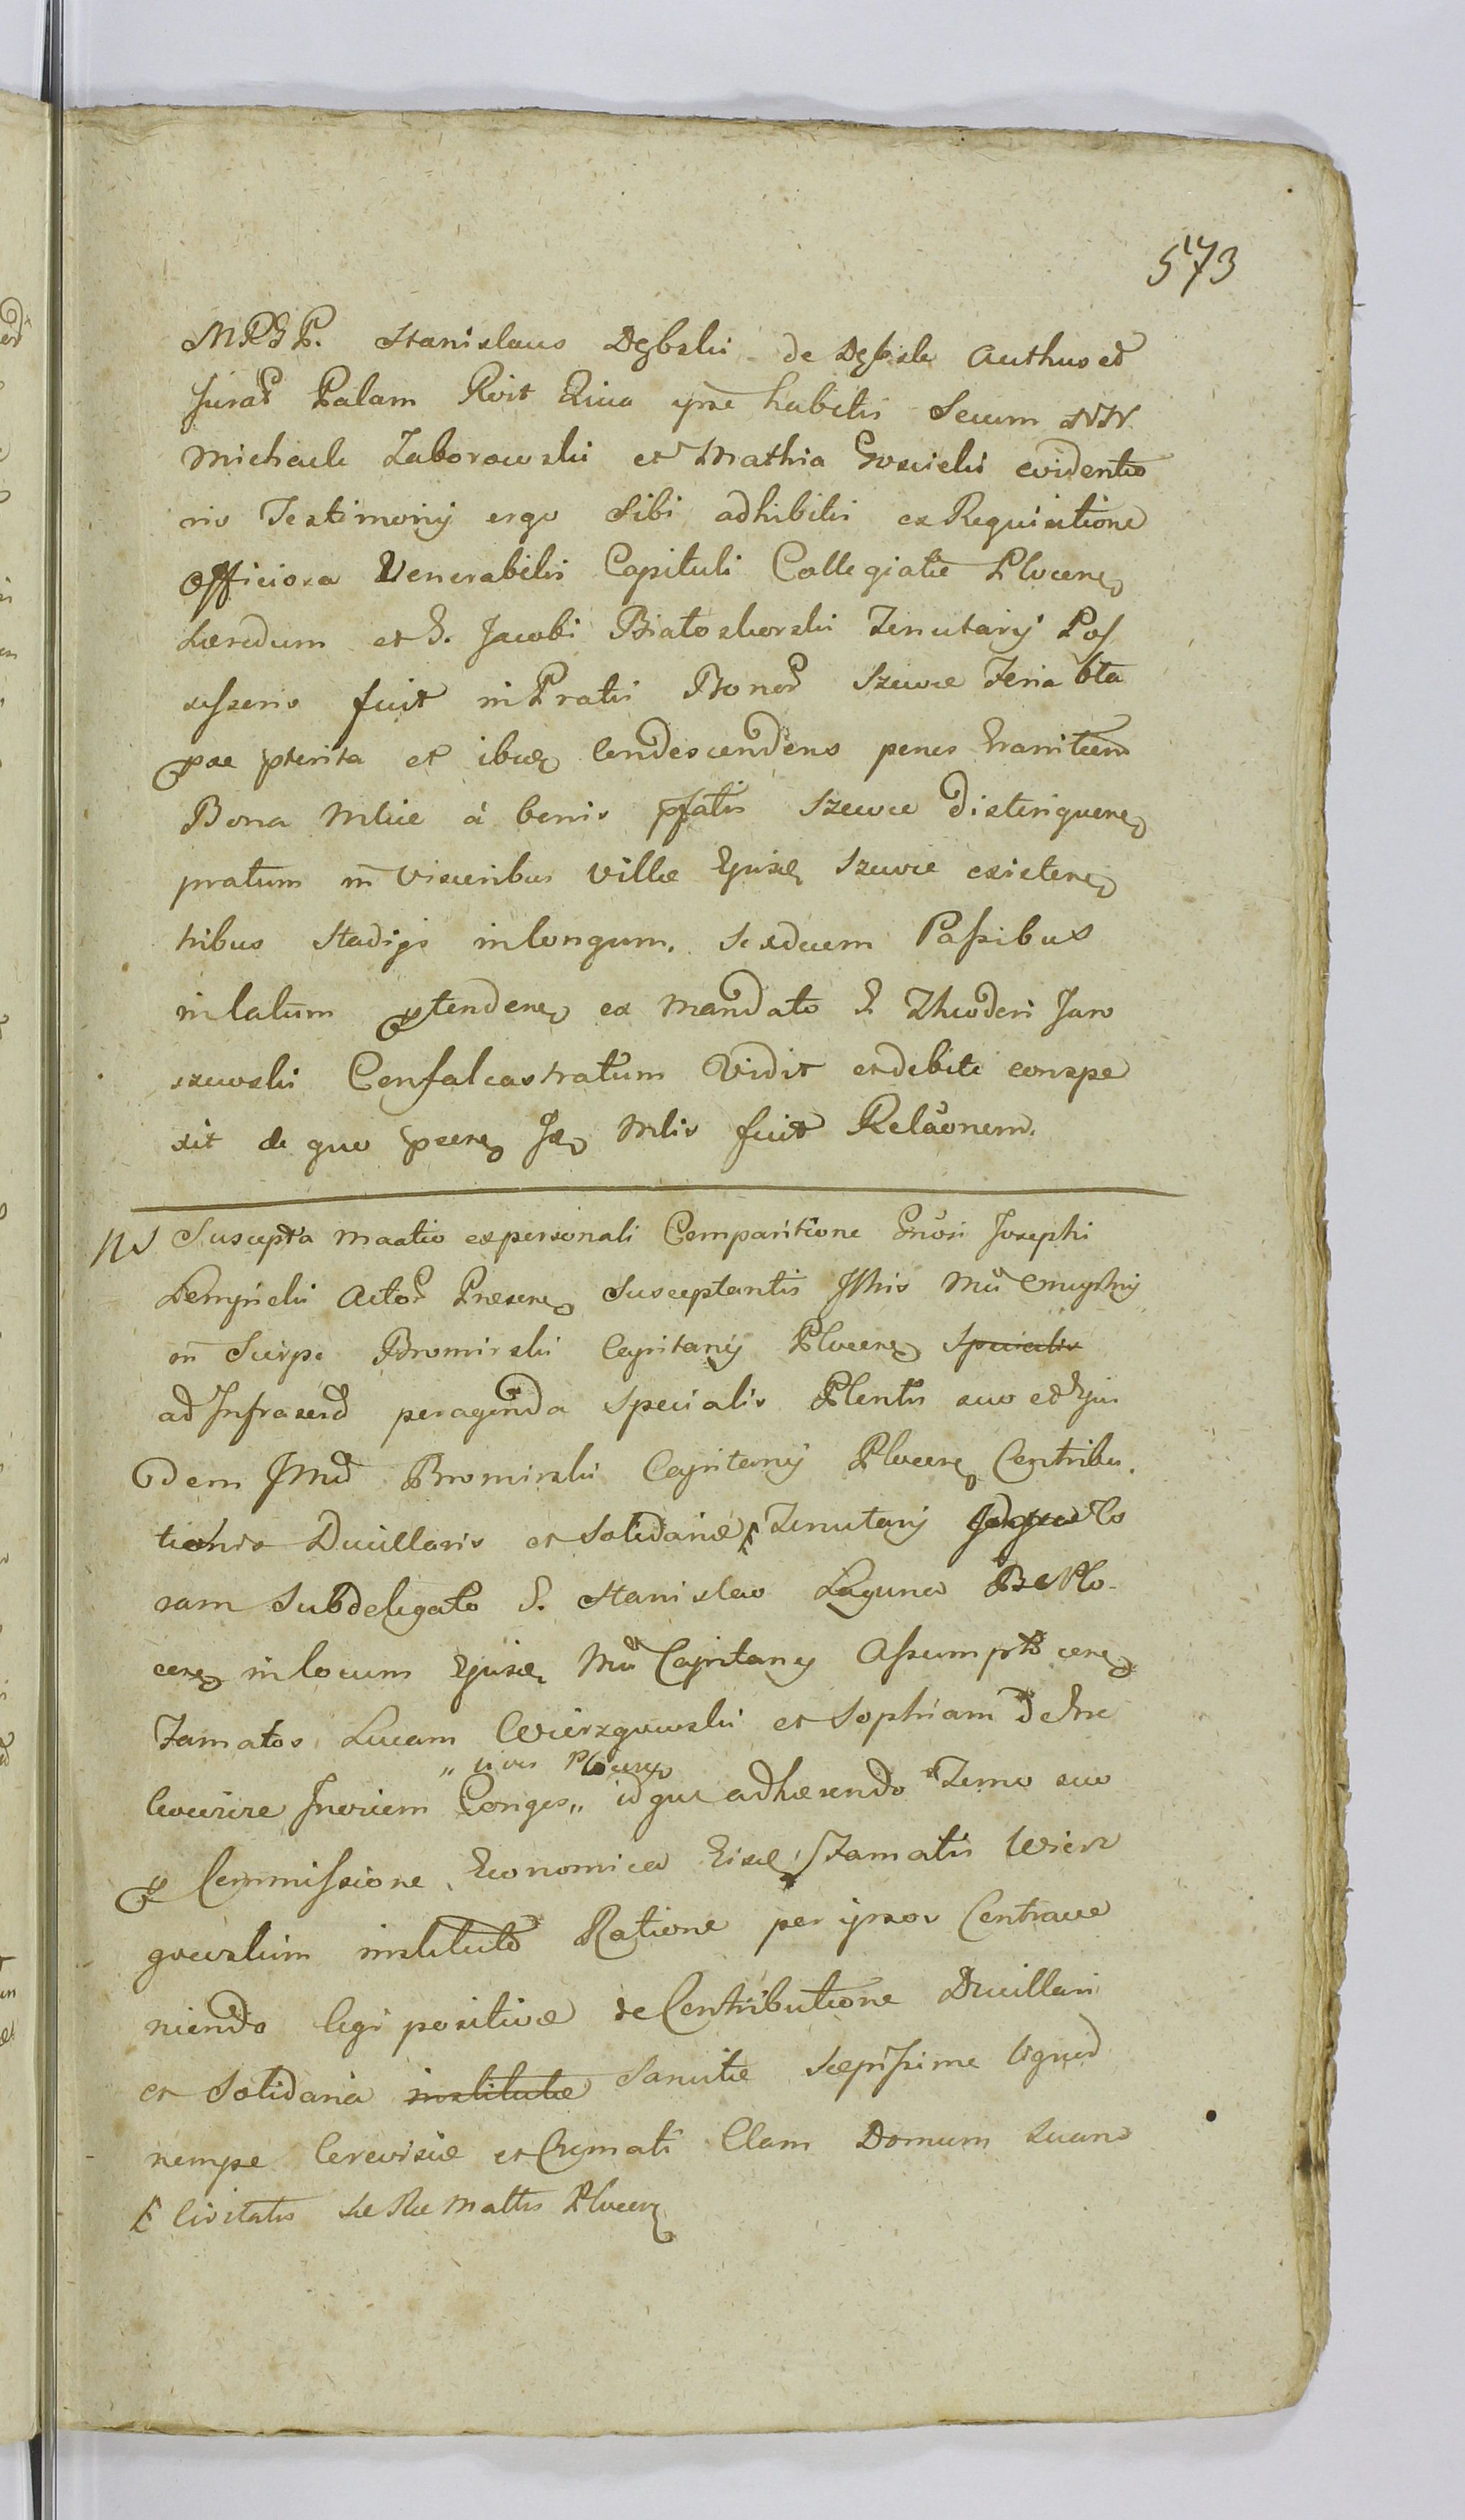 573
MRGP. Stanislaus Dębski de Dębsk Authus et
Jurat Palam Rvit Quia ipse habitis Secum NN.
Michaele Zaborowski et Mathia Gosicki evidentio
ris Testimonij ergo Sibi adhibitis ex Requisitione
Officiosa Venerabilis Capituli Collegiatæ Plocen
Hæredum et G. Jacobi Białoskorski Tenutarij Pos
sessoris fuit in Pratis Bonor Szewce Feria 6ta
pterita et ibidem Condescendens penes Granitiem
Bona Mlice à bonis pfatis Szewce Distinguen
pratum in Visceribus Villæ Ejusd Szewce existen
tribus Stadijs in longum, Sexdecem Passibus
in latum ptenden ex Mandato G Theodori Jaro
szewski Confalcastratum Vidit et debite conspe
xit de quo pcen Mlis fuit Relaonem.
NS Suscepta Maatio ex personali Comparitione Gnosi Josephi
Lempicki Actor Præsen Susceptantis Illtris Mci
in Sierpc Bromirski Capitanij Plocen Specialis
ad Infrascrd peragenda Specialis Plentis suo et Ejus
dem JMci Bromirski Capitanij Plocen Contribu
tionis Ducillaris et Solidariæ Tenutarij Co
ram Subdelegato G. Stanislao Laguna BCPlo-
cen in locum Ejusd Mci Capitanij Assumpto cen
Famatos Lucam Wierzgowski et Sophiam de
Conges,, idque adhærendo Termo suo
,, cives Plocen
Commissione Economica Eisd Famatis Wierz
gowskim instituto Ratione per ipsos Contrave
niendo legi positivæ de Contributione Ducillari
et Solidaria institutæ Sancitæ Sæpissime liquid
nempe Cerevisiæ et Cremati Clam Domum Suam
Civitatis SæRæMattis Plocen